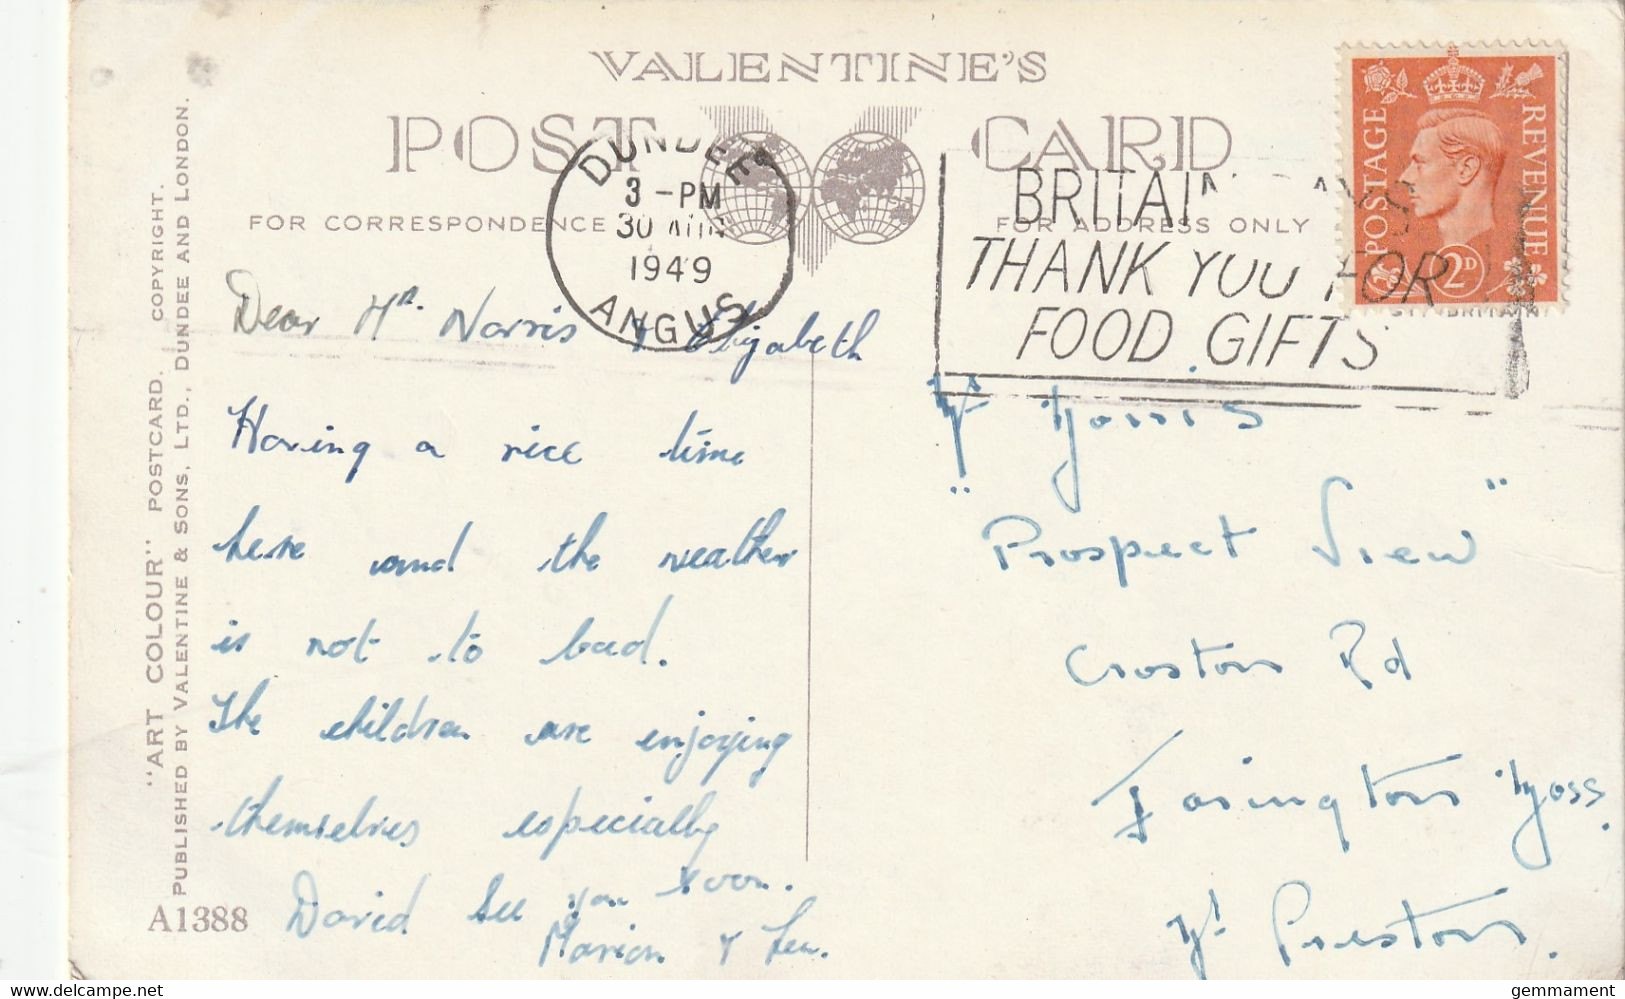 VALENTINE'S
POST CARD
FOR CORRESPONDENCE
FOR ADDRESS ONLY
DUNDEE
3 - PM
30 AUG
1949
ANGUS
BRITAIN SAYS
THANK YOU FOR
FOOD GIFTS
POSTAGE
REVENUE
2D
"ART COLOUR" POSTCARD. COPYRIGHT.
PUBLISHED BY VALENTINE & SONS, LTD., DUNDEE AND LONDON.
A1388
Dear Mr. Norris & Elizabeth
Having a nice time
here and the weather
is not to bad.
The children are enjoying
themselves especially
David See you soon.
Marion & Len.
Mr Norris
"Prospect View"
Croston Rd
Farington Moss.
Nr Preston.
gemmament